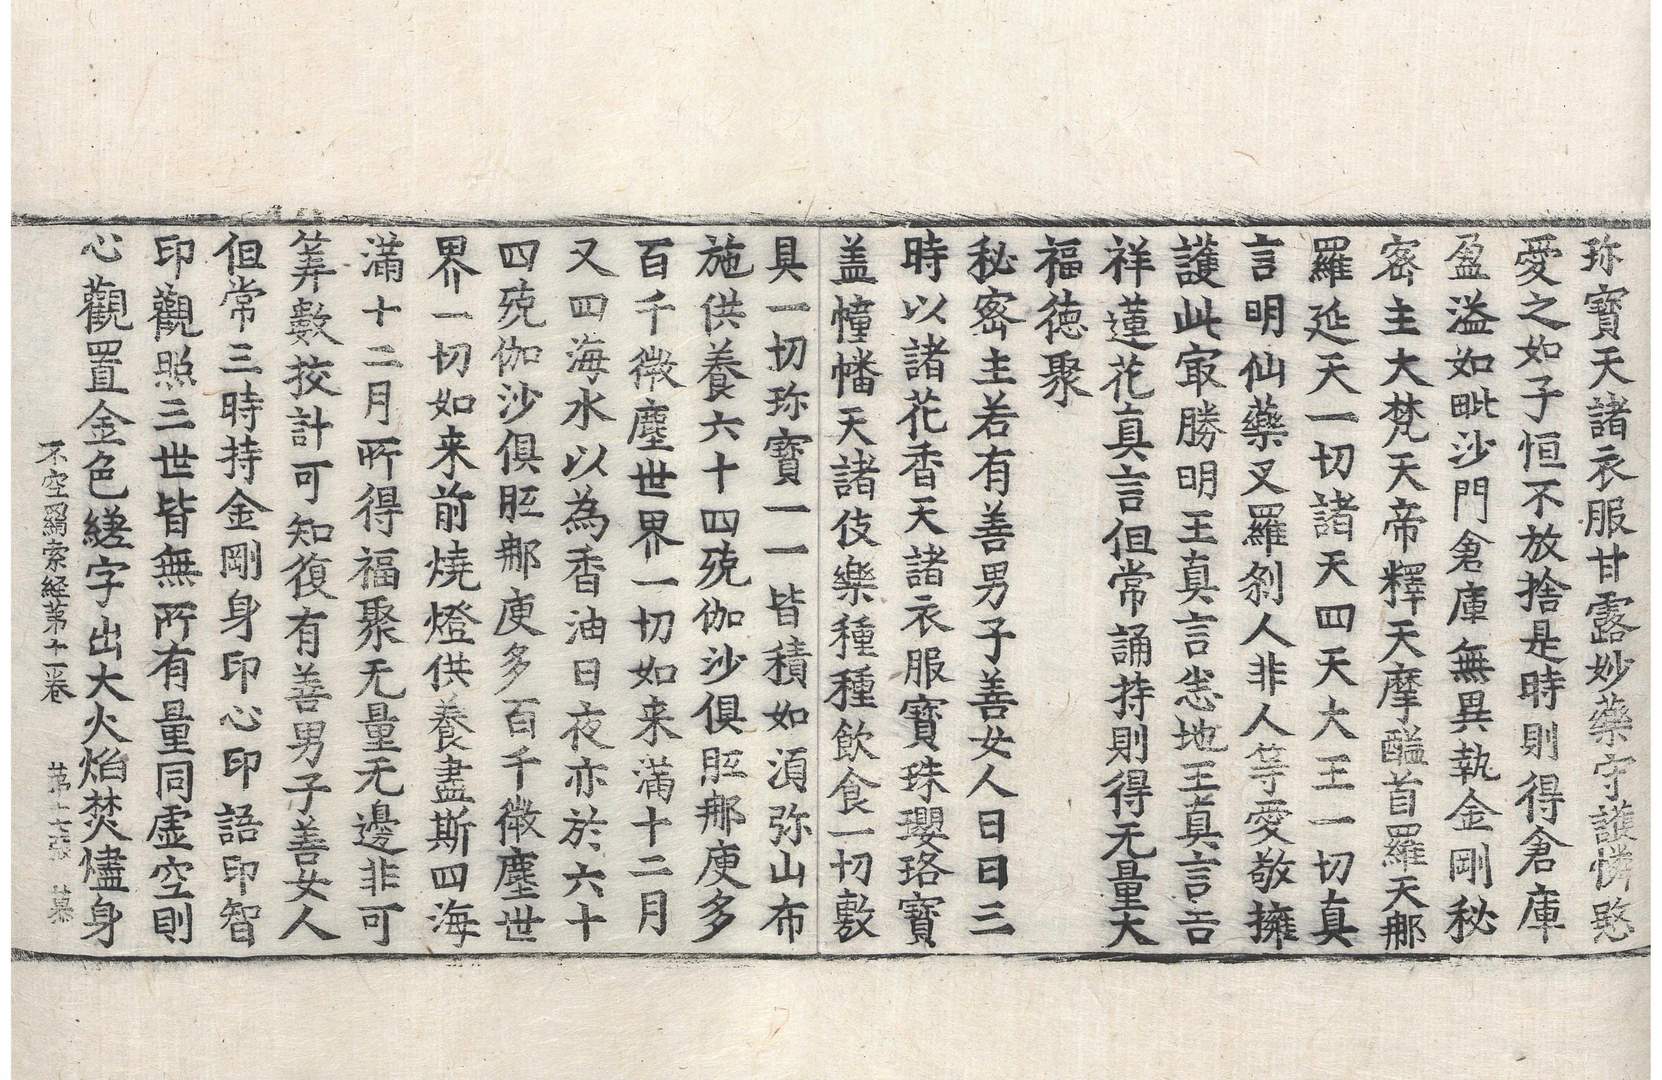 珎寶天諸衣服甘露妙藥守護憐愍
愛之如子恒不放捨是時則得倉庫
盈溢如毗沙門倉庫無異執金剛秘
密主大梵天帝釋天摩醯首羅天那
羅延天一切諸天四天大王一切真
言明仙藥叉羅剎人非人等愛敬擁
護此㝡勝明王真言悉地王真言吉
祥蓮花真言但常誦持則得无量大
福徳聚
秘密主若有善男子善女人日日三
時以諸花香天諸衣服寶珠瓔珞寶
盖幢幡天諸伎樂種種飲食一切敷
具一切珎寶一一皆積如湏弥山布
施供養六十四殑伽沙俱胝那庾多
百千微塵世界一切如来滿十二月
又四海水以為香油日夜亦於六十
四殑伽沙俱胝那庾多百千微塵世
界一切如来前燒燈供養盡斯四海
滿十二月所得福聚无量无邊非可
筭數挍計可知復有善男子善女人
但常三時持金剛身印心印語印智
印觀照三世皆無所有量同虛空則
心觀置金色縒字出大火焰焚燼身
不空羂索経苐十二卷 苐十七張 墓